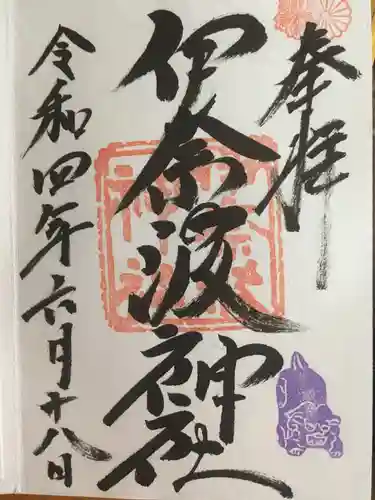 奉拝
伊奈波神社
令和四年六月十八日